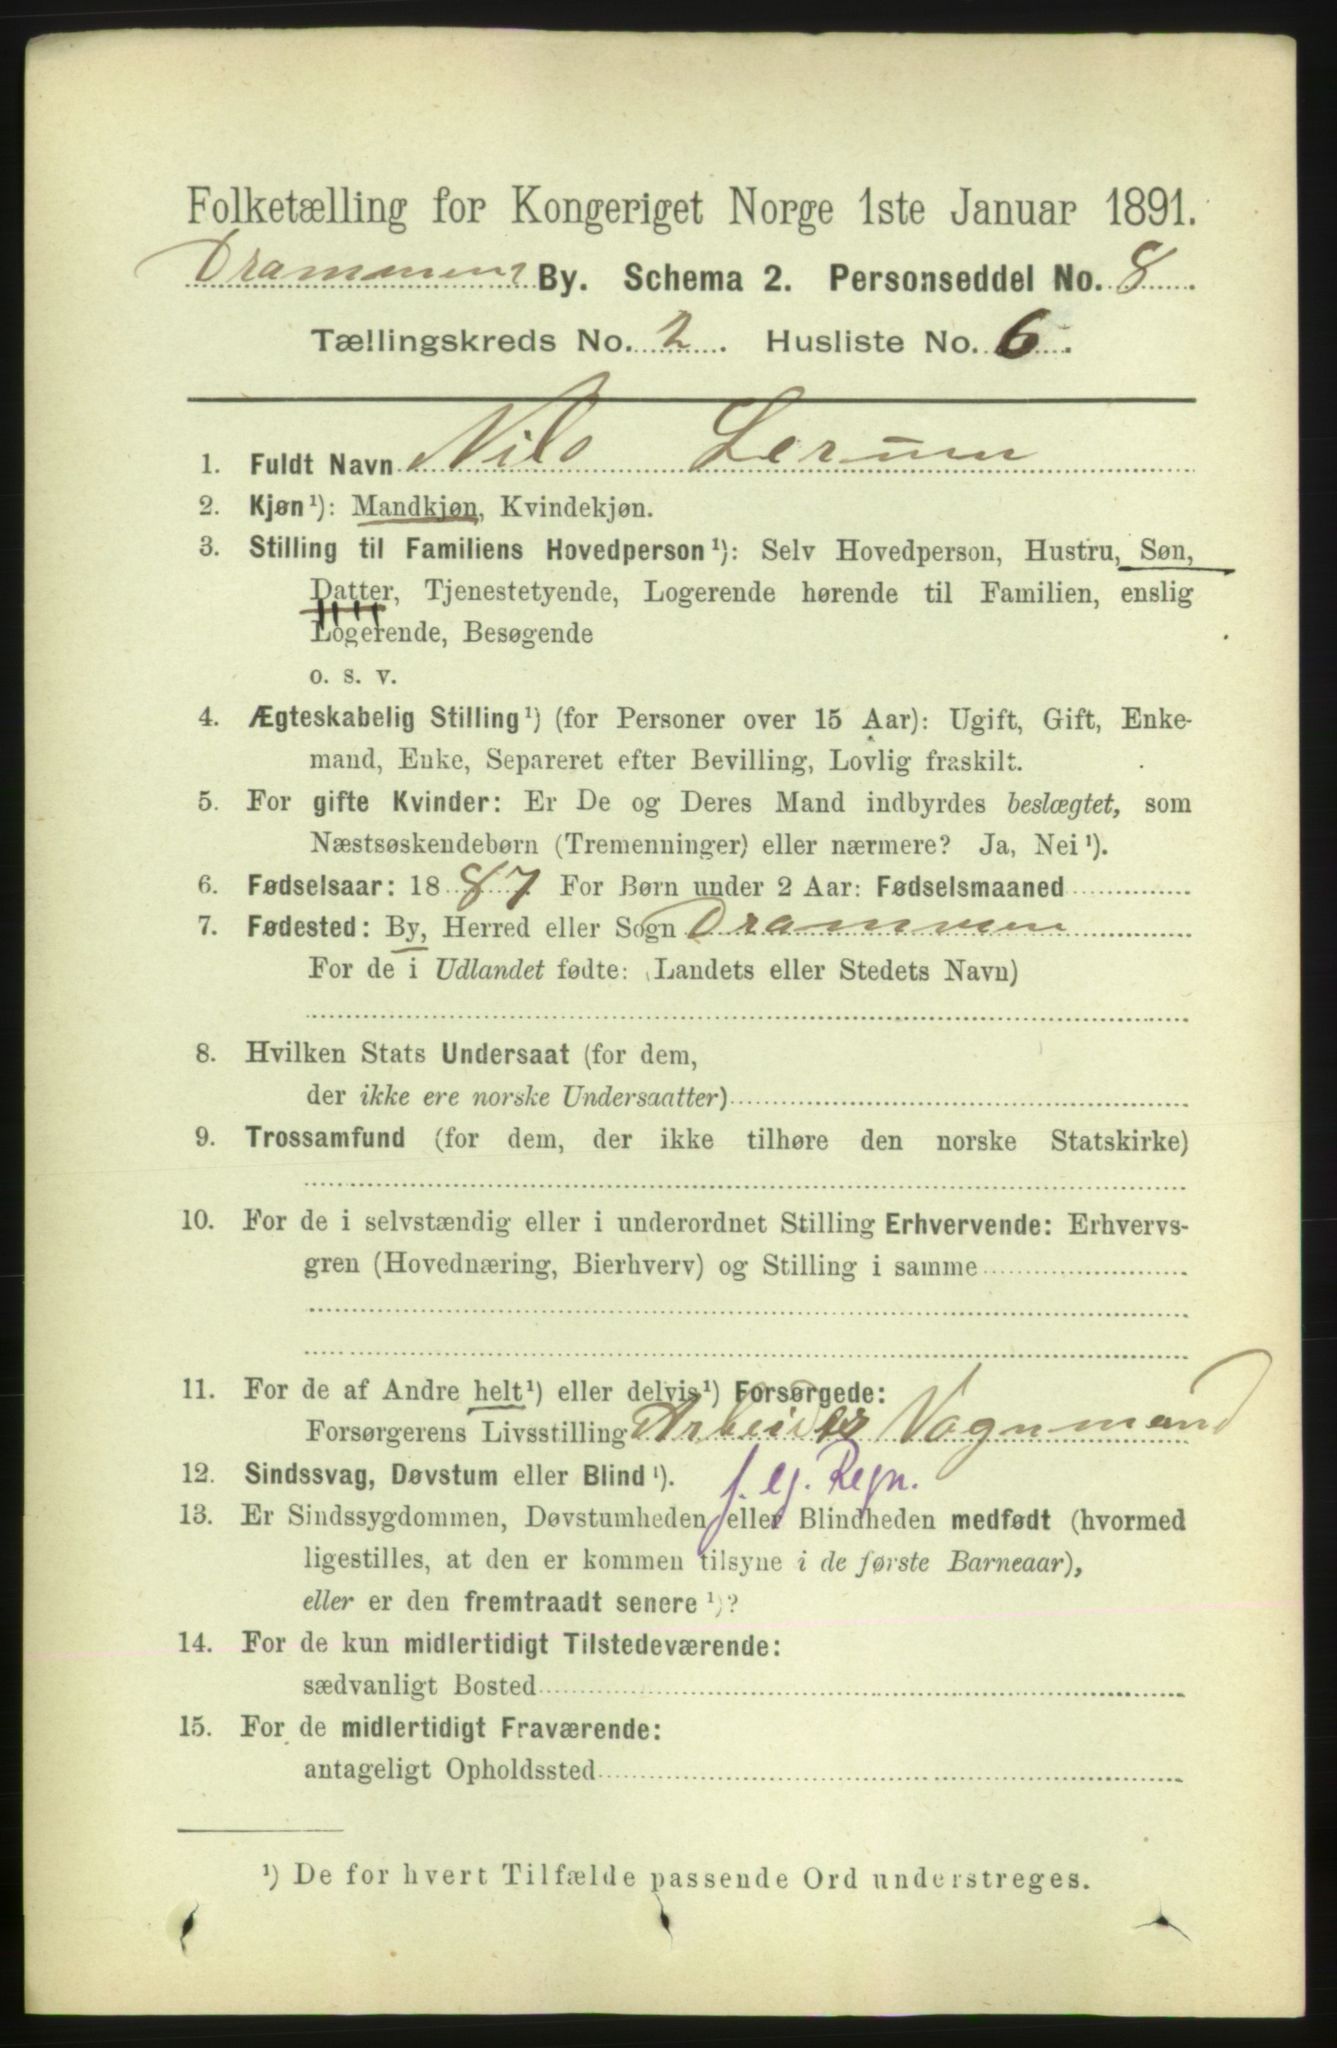 Folketælling for Kongeriget Norge 1ste Januar 1891.
Drammens By. Schema 2. Personseddel No. 8.
Tællingskreds No. 2. Husliste No. 6.
1. Fuldt Navn Nils Lerum
2. Kjøn¹): Mandkjøn, Kvindekjøn.
3. Stilling til Familiens Hovedperson¹): Selv Hovedperson, Hustru, Søn,
Datter, Tjenestetyende, Logerende hørende til Familien, enslig
Logerende, Besøgende
o. s. v.
4. Ægteskabelig Stilling¹) (for Personer over 15 Aar): Ugift, Gift, Enke-
mand, Enke, Separeret efter Bevilling, Lovlig fraskilt.
5. For gifte Kvinder: Er De og Deres Mand indbyrdes beslægtet, som
Næstsøskendebørn (Tremenninger) eller nærmere? Ja, Nei¹).
6. Fødselsaar: 1887. For Børn under 2 Aar: Fødselsmaaned
7. Fødested: By, Herred eller Sogn Drammen
For de i Udlandet fødte: (Landets eller Stedets Navn)
8. Hvilken Stats Undersaat (for dem,
der ikke ere norske Undersaatter)
9. Trossamfund (for dem, der ikke tilhøre den norske Statskirke)
10. For de i selvstændig eller i underordnet Stilling Erhvervende: Erhvervs-
gren (Hovednæring, Bierhverv) og Stilling i samme
11. For de af Andre helt¹) eller delvis¹) Forsørgede:
Forsørgerens Livsstilling Arbeider Vognmand
f. eg. Regn.
12. Sindssvag, Døvstum eller Blind¹).
13. Er Sindssygdommen, Døvstumheden eller Blindheden medfødt (hvormed
ligestilles, at den er kommen tilsyne i de første Barneaar),
eller er den fremtraadt senere¹)?
14. For de kun midlertidigt Tilstedeværende:
sædvanligt Bosted
15. For de midlertidigt Fraværende:
antageligt Opholdssted
¹) De for hvert Tilfælde passende Ord understreges.